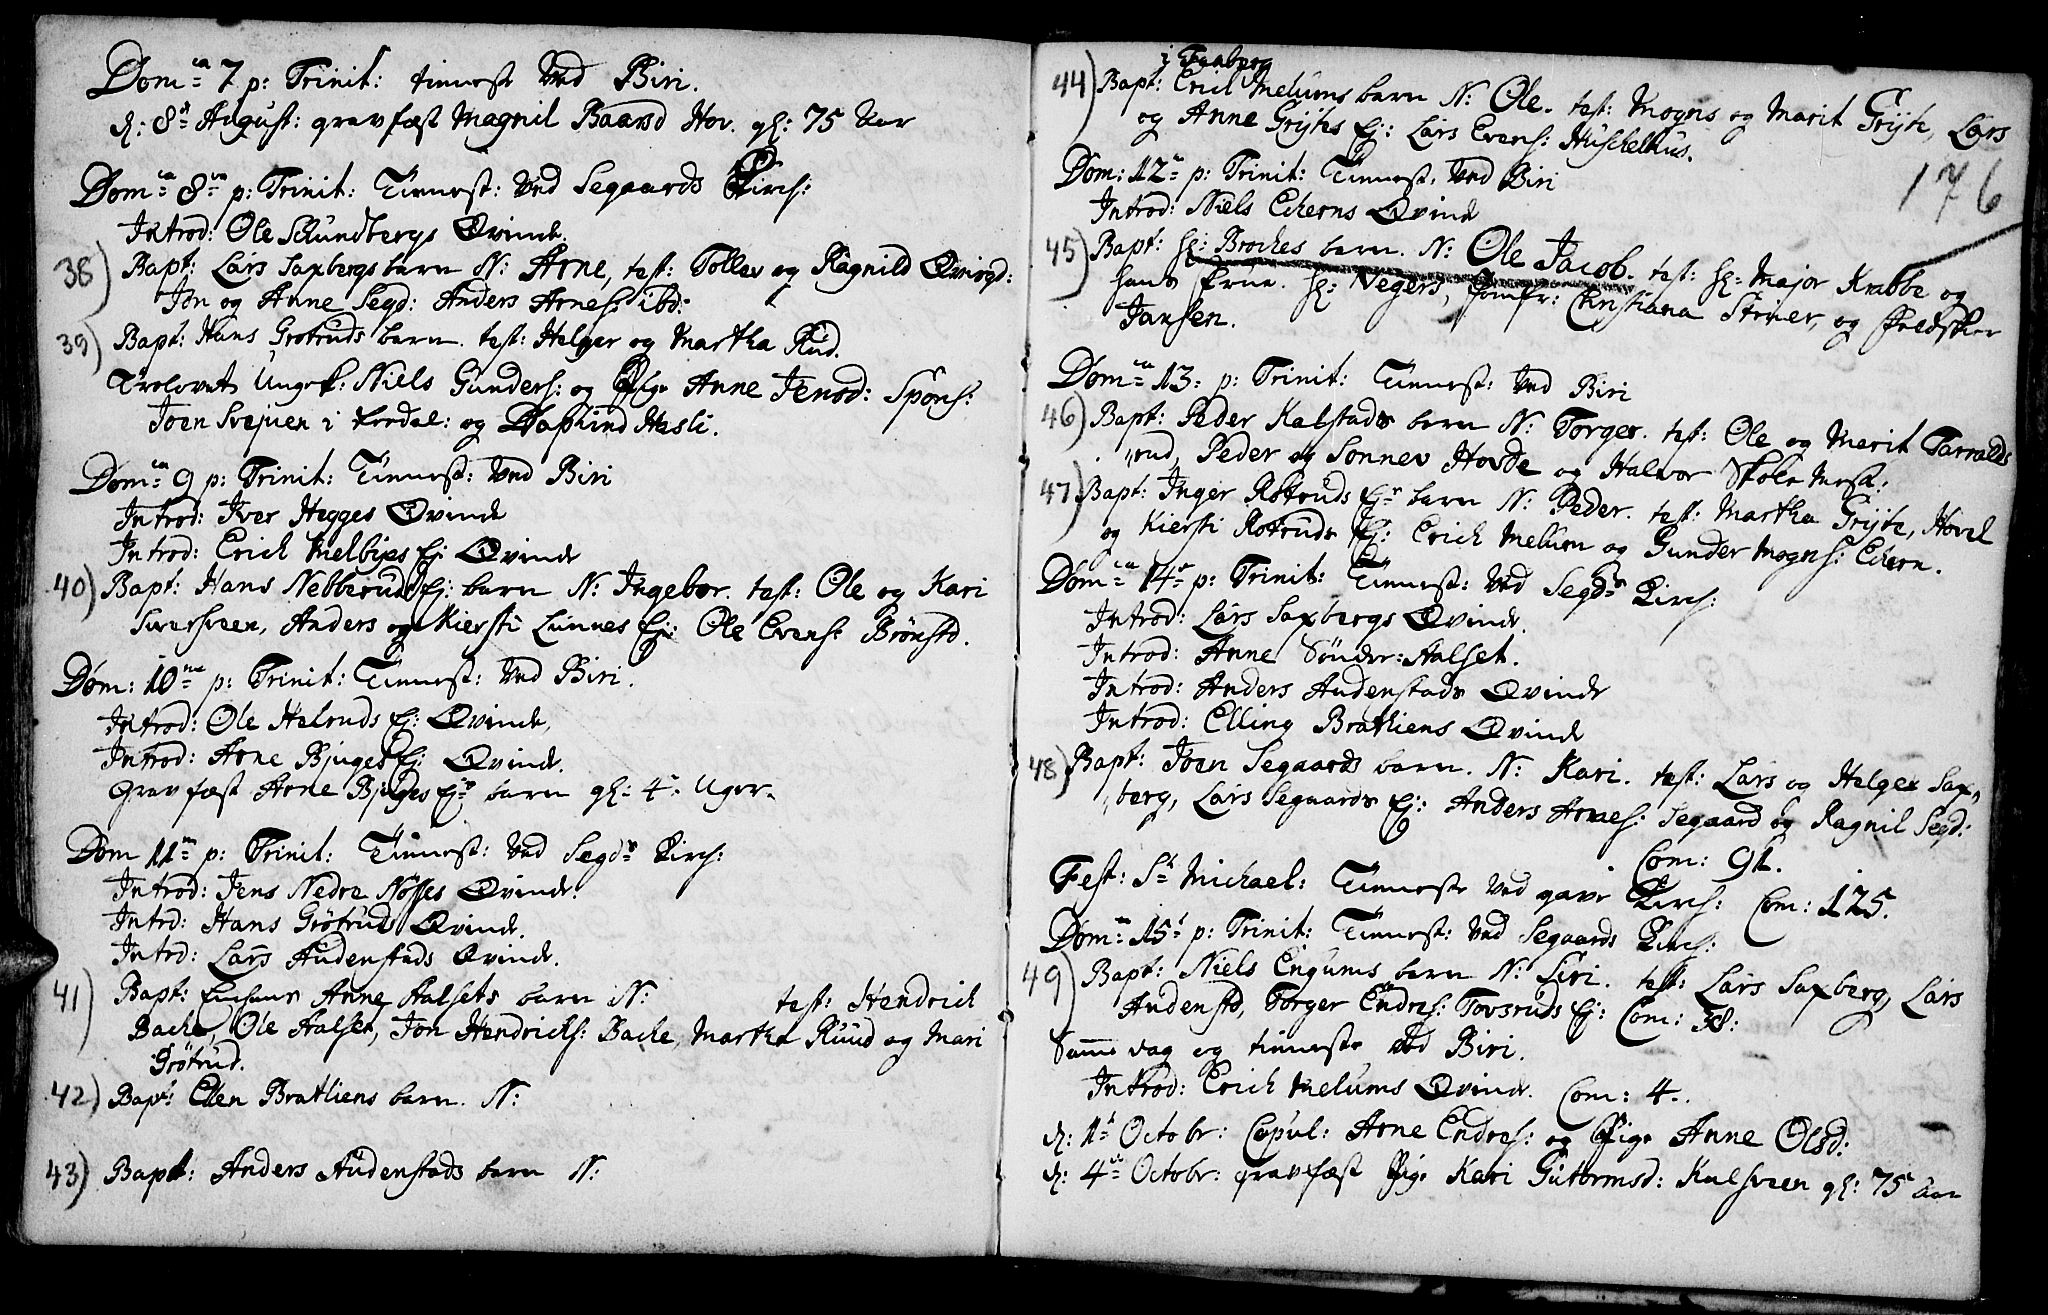 Dom:ca 7 p: Trinit: tienneste Ved Biri.
d: 8de August: gravfæst Magnil Baarsd Hov. gl: 75 Aar
Dom:ca 8va p: Trinit: Tiennest: Ved Segaards Kirch:
Introd: Ole Schundbergs Qvinde.
38) Bapt: Lars Saxbergs barn N: Arne, test: Tollev og Ragnild
Jon og Anne Segd: Anders Arnes: ibd:
39) Bapt: Hans Grøtruds barn. test: Helge og Martha Rud.
Trolovet Ungk: Niels Gunders: og Pige Anne Jensd: Spons:
Joen Svejuen i og Hasli.
Dom:ca 9 p: Trinit: Tiennest: Ved Biri
Introd: Iver Hegges Qvinde
Introd: Erich Melbyes Ej: Qvinde
40) Bapt: Hans Nebberuds Ej: barn N: Ingebor. test: Ole og Kari
Sversveen, Anders og Kiersti Lunnes Ej: Ole Evens: Brønstd.
Dom: 10ma p: Trinit: Tiennest: Ved Biri.
Introd: Ole Helruds Ej: Qvinde,
Introd: Arne Bjuges Ej: Qvinde.
Gravfæst Arne Bjuges Ejs barn gl: 4 Uger.
Dom 11ma p: Trinit: Tiennest: Ved Segds Kirch:
Introd: Jens Nedre Nøsses Qvinde.
Introd: Hans Grøtrud Qvinde.
Introd: Lars Audenstads Qvinde.
41) Bapt: Anne Aalsets barn N: test: Hendrich
Bache, Ole Aalset, Jon Hendrichs: Bache, Martha Ruud og Mari
Grøtrud.
42) Bapt: Ellen Bratliens barn. N:
43) Bapt: Anders Audenstads barn N:
i Faaberg
44) Bapt: Erich Melums barn N: Ole. test: Mogns og Marit Gryte, Lars
og Anne Grytes Ej: Lars Evens: Huschelhus.
176
Dom: 12te p: Trinit: Tiennest: Ved Biri
Introd: Niels Echerns Qvinde
45) Bapt: Hr: Broches barn. N: Ole Jacob. test: Hr: Major Krabbe og
hans Frue. Hr: Negers, Jomfr: Christiana Stener, og
Jansen.
Dom:ca 13: p: Trinit: Tiennest: Ved Biri
46) Bapt: Peder Kalstads barn N: Torger. test: Ole og Marit Tarralds
"rud, Peder og Sonnev Hovde og Halvor Skole Mest:
47) Bapt: Inger Rotruds Ejs barn N: Peder. test: Martha Gryte, Hovel
og Kiersti Rotruds Ej: Erich Melum og Gunder Mogns: Echern.
Dom:ca 14de p: Trinit: Tiennest: Ved Segds Kirch:
Introd: Lars Saxbergs Qvinde.
Introd: Anne Sønder:Aalset.
Introd: Anders Audenstads Qvinde
Introd: Elling Bratliens Qvinde
48) Bapt: Joen Segaards barn. N: Kari. test: Lars og Helge Sax"
"berg, Lars Segaards Ej: Anders Arnes: Segaard og Ragnil Segd:
Com: 91.
Fest: St Michael: Tienneste Ved Kirch: Com: 125.
Dom:ca 15t p: Trinit: Tiennest: Ved Segaards Kirch:
49) Bapt: Niels Engums barn N: Siri. test: Lars Saxberg, Lars
Audenstd, Torger Endres: Tovsruds Ej: Com: 38:
Samme dag og tienneste ved Biri.
Introd: Erich Melums Qvinde. Com: 4.
d: 1te Octobr: Copul: Arne Endres: og Pige Anne Olsd:
d: 4de Octobr: gravfæst Pige Kari Gutormsd: Kalsveen gl: 75 aar